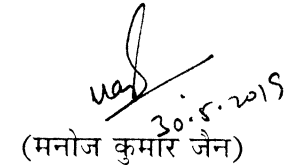 30.5.2019
(मनोज कुमार जैन)